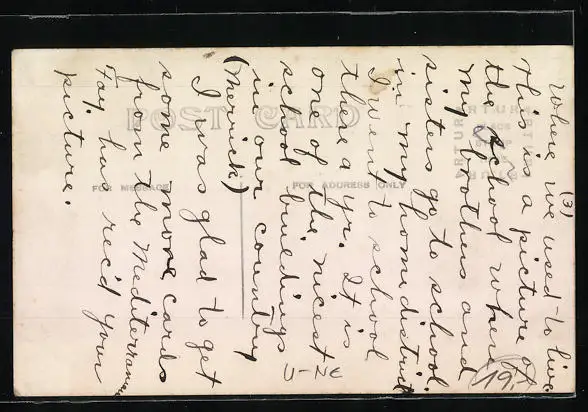 (3)
where we used to live
This is a picture of
the school where
my brothers and
sisters go to school,
in my home district
I went to school
there a yr. It is
one of the nicest
school buildings
in our country
(Merrick)
I was glad to get
some more cards
from the Mediterranean
Fay has rec'd your
picture.
U-Ne
19.
POST CARD
FOR MESSAGE
FOR ADDRESS ONLY
ARTURA
ARTURA
ARTURA
ARTURA
PLACE
STAMP